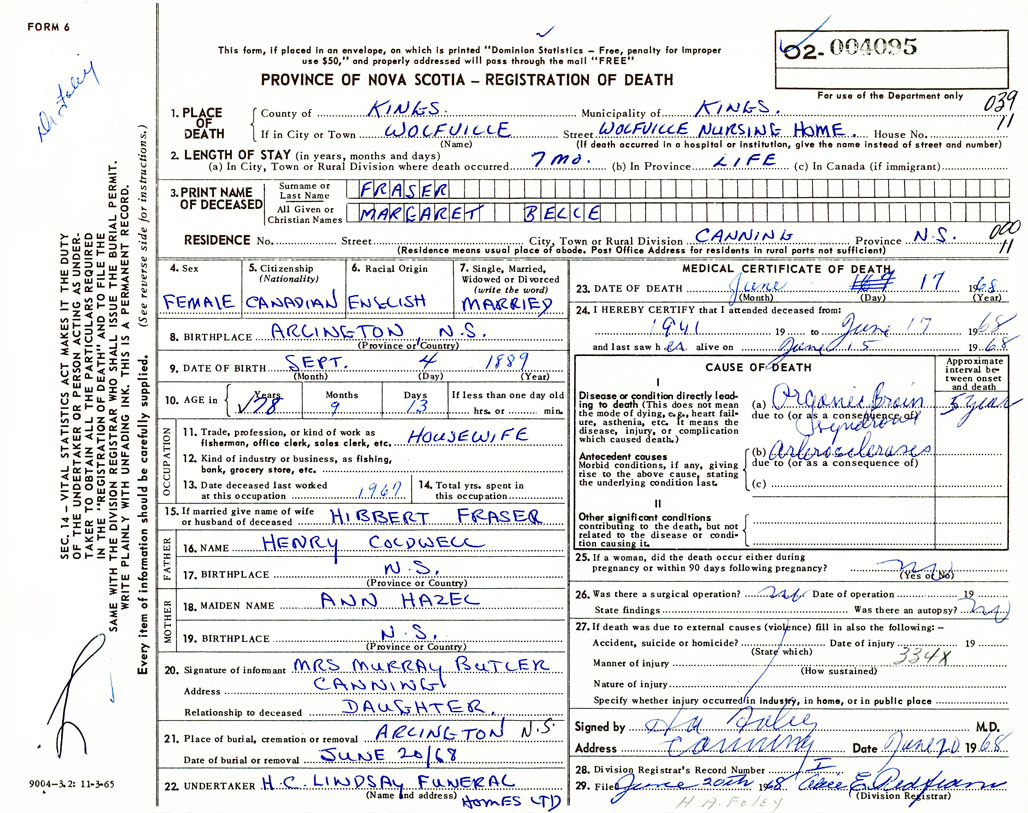 FORM 6
Dr Foley
This form, if placed in an envelope, on which is printed "Dominion Statistics – Free, penalty for improper
use $50," and properly addressed will pass through the mail "FREE"
PROVINCE OF NOVA SCOTIA – REGISTRATION OF DEATH
02-004095
For use of the Department only
039
11
1. PLACE OF DEATH
County of KINGS. Municipality of KINGS.
If in City or Town WOLFVILLE Street WOLFVILLE NURSING HOME. House No.
(Name) (If death occurred in a hospital or institution, give the name instead of street and number)
2. LENGTH OF STAY (in years, months and days)
(a) In City, Town or Rural Division where death occurred 7 MO. (b) In Province LIFE (c) In Canada (if immigrant)
3. PRINT NAME OF DECEASED
Surname or Last Name FRASER
All Given or Christian Names MARGARET BELLE
RESIDENCE No. Street City, Town or Rural Division CANNING Province N.S.
000
11
(Residence means usual place of abode. Post Office Address for residents in rural parts not sufficient)
4. Sex
FEMALE
5. Citizenship
(Nationality)
CANADIAN
6. Racial Origin
ENGLISH
7. Single, Married,
Widowed or Divorced
(write the word)
MARRIED
8. BIRTHPLACE ARLINGTON, N.S.
(Province or Country)
9. DATE OF BIRTH SEPT. 4 1889
(Month) (Day) (Year)
10. AGE in
Years Months Days If less than one day old
78 9 13 hrs. or min.
OCCUPATION
11. Trade, profession, or kind of work as
fisherman, office clerk, sales clerk, etc. HOUSEWIFE
12. Kind of industry or business, as fishing,
bank, grocery store, etc.
13. Date deceased last worked
at this occupation 1967
14. Total yrs. spent in
this occupation
15. If married give name of wife
or husband of deceased HIBBERT FRASER
FATHER
16. NAME HENRY COLDWELL
17. BIRTHPLACE N.S.
(Province or Country)
MOTHER
18. MAIDEN NAME ANN HAZEL
19. BIRTHPLACE N.S.
(Province or Country)
20. Signature of informant MRS MURRAY BUTLER
Address CANNING
Relationship to deceased DAUGHTER.
21. Place of burial, cremation or removal ARLINGTON N.S
Date of burial or removal JUNE 20/68
22. UNDERTAKER H.C. LINDSAY FUNERAL
(Name and address) HOMES LTD
MEDICAL CERTIFICATE OF DEATH
23. DATE OF DEATH June 17 1968
(Month) (Day) (Year)
24. I HEREBY CERTIFY that I attended deceased from:
1941 19 to June 17 1968
and last saw her alive on June 15 1968
CAUSE OF DEATH
Approximate
interval be-
tween onset
and death
I
Disease or condition directly lead-
ing to death (This does not mean
the mode of dying, e.g., heart fail-
ure, asthenia, etc. It means the
disease, injury, or complication
which caused death.)
(a) Organic Brain 5 year
due to (or as a consequence of)
Syndrome
Antecedent causes
Morbid conditions, if any, giving
rise to the above cause, stating
the underlying condition last.
(b) Arterosclerosis
due to (or as a consequence of)
(c)
II
Other significant conditions
contributing to the death, but not
related to the disease or condi-
tion causing it.
25. If a woman, did the death occur either during
pregnancy or within 90 days following pregnancy? no
(Yes or No)
26. Was there a surgical operation? no Date of operation 19
State findings Was there an autopsy? no
27. If death was due to external causes (violence) fill in also the following: –
Accident, suicide or homicide? Date of injury 19
(State which) 334X
Manner of injury
(How sustained)
Nature of injury
Specify whether injury occurred in industry, in home, or in public place
Signed by HA Foley M.D.
Address Canning Date June 20 1968
28. Division Registrar's Record Number I
29. Filed June 20th 1968
(Division Registrar)
H A. FOLEY
SEC. 14 – VITAL STATISTICS ACT MAKES IT THE DUTY
OF THE UNDERTAKER OR PERSON ACTING AS UNDER-
TAKER TO OBTAIN ALL THE PARTICULARS REQUIRED
IN THE "REGISTRATION OF DEATH" AND TO FILE THE
SAME WITH THE DIVISION REGISTRAR WHO SHALL ISSUE THE BURIAL PERMIT.
WRITE PLAINLY WITH UNFADING INK. THIS IS A PERMANENT RECORD.
Every item of information should be carefully supplied. (See reverse side for instructions.)
9004-3.2: 11-3-65